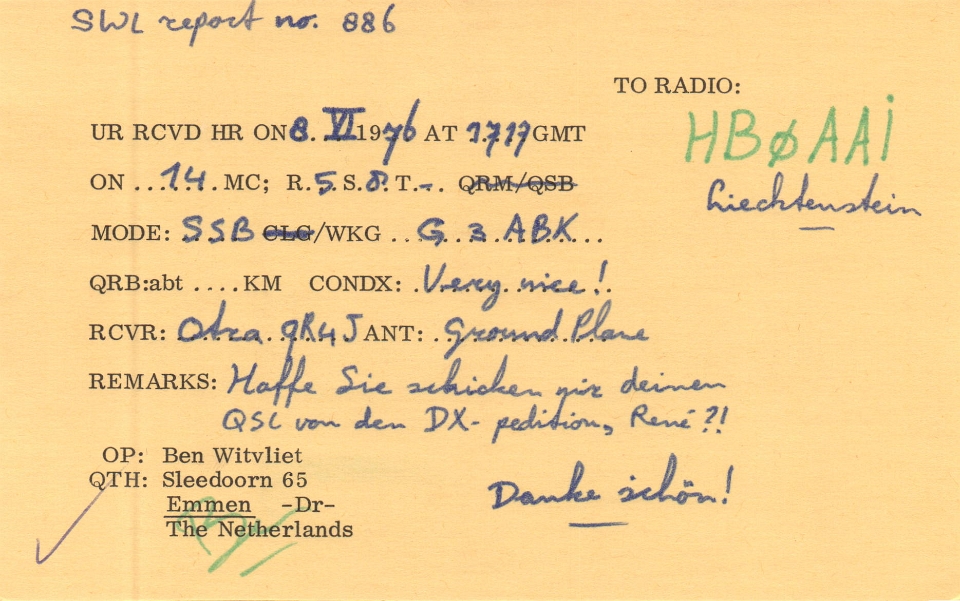 SWL report no. 886
TO RADIO:
HBØAAI
Liechtenstein
UR RCVD HR ON 8. VI 1976 AT 1717 GMT
ON ...14. MC; R.5.S.8.T.-.. QRM/QSB
MODE: SSB CLG/WKG ..G.3.ABK...
QRB:abt ....KM CONDX: .Very nice!.
RCVR: QR4J ANT: Ground Plane
REMARKS: Hoffe Sie schicken mir deinen
QSL von den DX-pedition, René?!
OP: Ben Witvliet
QTH: Sleedoorn 65
Emmen -Dr-
The Netherlands
Danke schön!